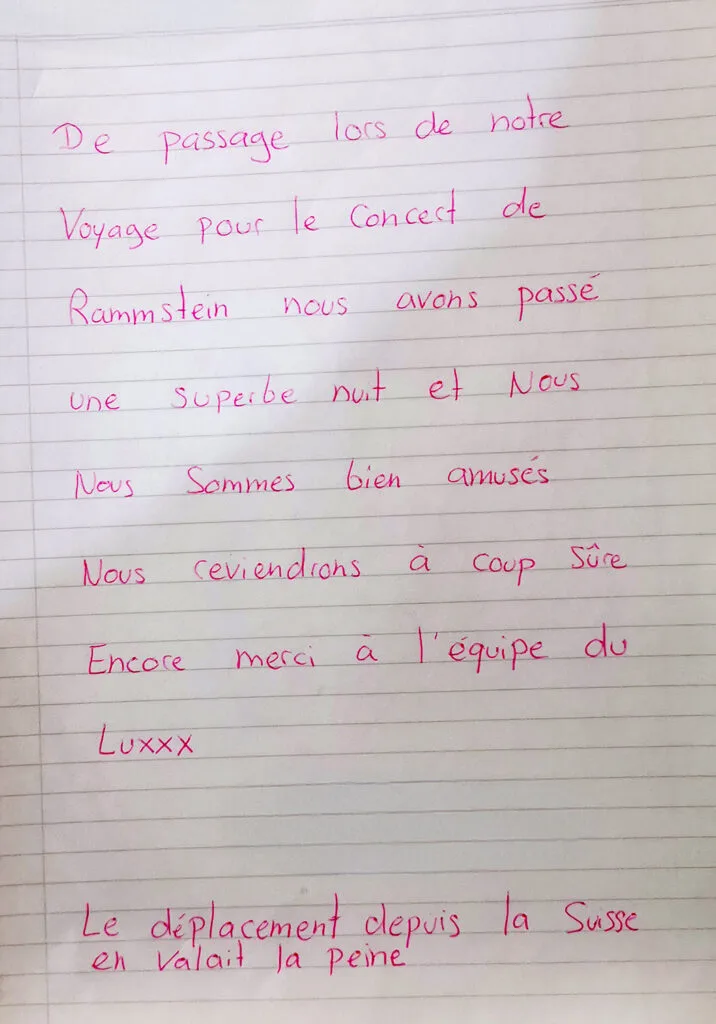 De passage lors de notre
Voyage pour le Concert de
Rammstein nous avons passé
une superbe nuit et Nous
Nous Sommes bien amusés
Nous reviendrons à coup Sûre
Encore merci à l'équipe du
Luxxx
Le déplacement depuis la Suisse
en valait la peine